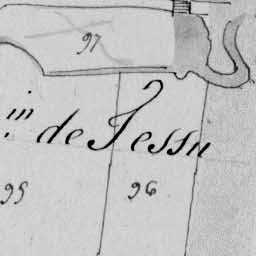 97
in de Jessu
95 96